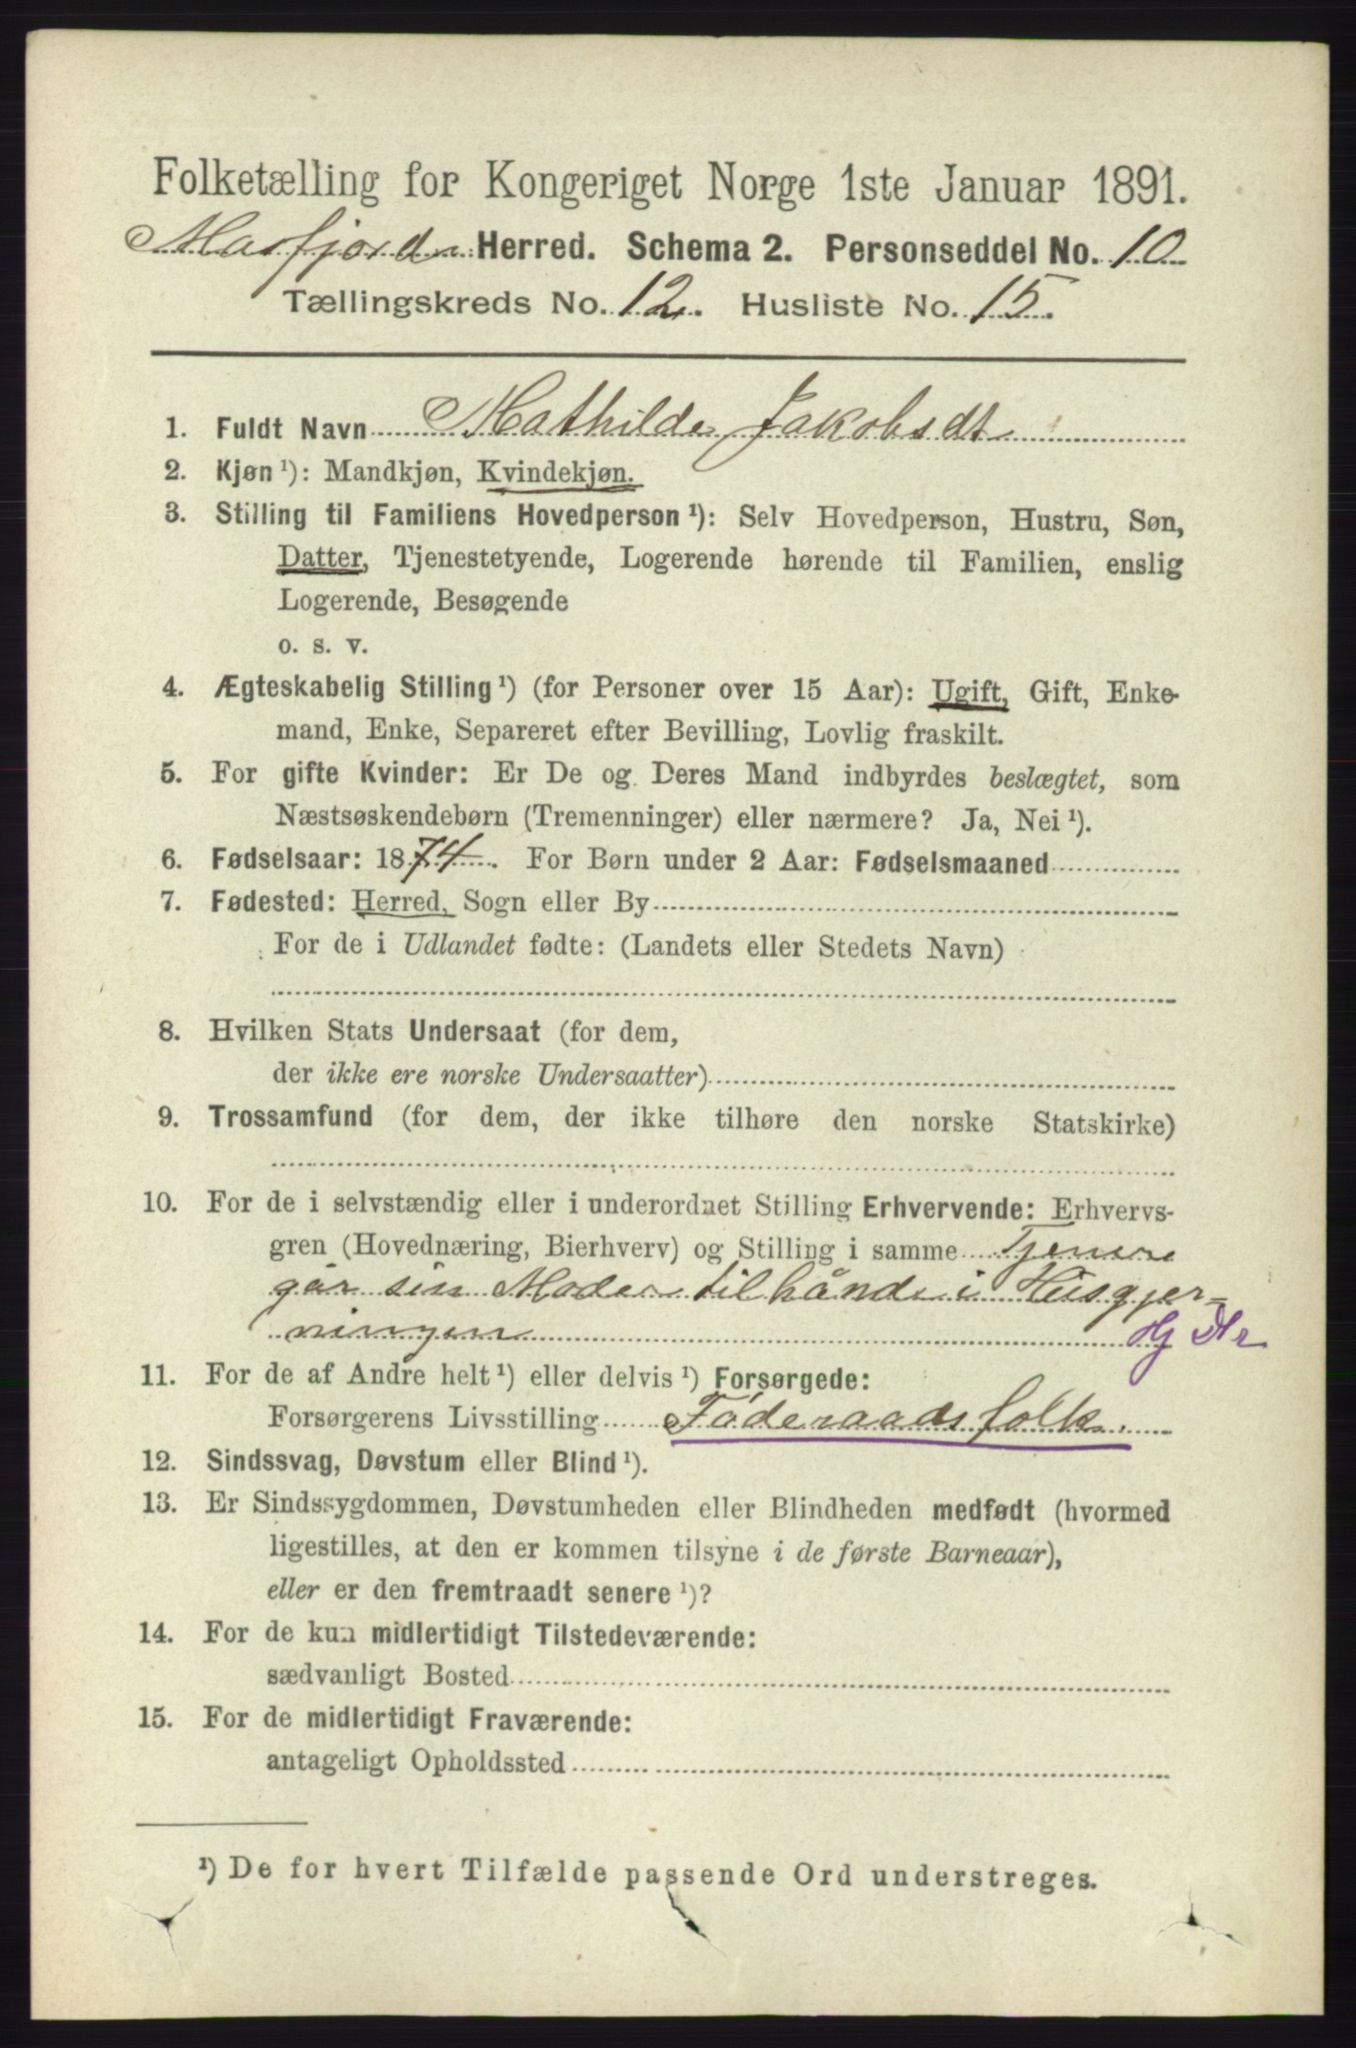 Folketælling for Kongeriget Norge 1ste Januar 1891.
Masfjorden Herred. Schema 2. Personseddel No. 10
Tællingskreds No. 12. Husliste No. 15.
1. Fuldt Navn Mathilde Jakobsdt
2. Kjøn ¹): Mandkjøn, Kvindekjøn.
3. Stilling til Familiens Hovedperson ¹): Selv Hovedperson, Hustru, Søn,
Datter, Tjenestetyende, Logerende hørende til Familien, enslig
Logerende, Besøgende
o. s. v.
4. Ægteskabelig Stilling ¹) (for Personer over 15 Aar): Ugift, Gift, Enke-
mand, Enke, Separeret efter Bevilling, Lovlig fraskilt.
5. For gifte Kvinder: Er De og Deres Mand indbyrdes beslægtet, som
Næstsøskendebørn (Tremenninger) eller nærmere? Ja, Nei ¹).
6. Fødselsaar: 1874. For Børn under 2 Aar: Fødselsmaaned
7. Fødested: Herred, Sogn eller By
For de i Udlandet fødte: (Landets eller Stedets Navn)
8. Hvilken Stats Undersaat (for dem,
der ikke ere norske Undersaatter)
9. Trossamfund (for dem, der ikke tilhøre den norske Statskirke)
10. For de i selvstændig eller i underordnet Stilling Erhvervende: Erhvervs-
gren (Hovednæring, Bierhverv) og Stilling i samme Tjener
går sin Moder tilhånde i Husgjer-
ningen Hj Dtr
11. For de af Andre helt ¹) eller delvis ¹) Forsørgede:
Forsørgerens Livsstilling Føderaadsfolk.
12. Sindssvag, Døvstum eller Blind ¹).
13. Er Sindssygdommen, Døvstumheden eller Blindheden medfødt (hvormed
ligestilles, at den er kommen tilsyne i de første Barneaar),
eller er den fremtraadt senere ¹)?
14. For de kun midlertidigt Tilstedeværende:
sædvanligt Bosted
15. For de midlertidigt Fraværende:
antageligt Opholdssted
¹) De for hvert Tilfælde passende Ord understreges.